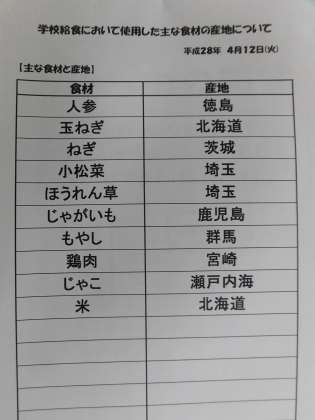 学校給食において使用した主な食材の産地について
平成28年 4月12日(火)
【主な食材と産地】
食材 産地
人参 徳島
玉ねぎ 北海道
ねぎ 茨城
小松菜 埼玉
ほうれん草 埼玉
じゃがいも 鹿児島
もやし 群馬
鶏肉 宮崎
じゃこ 瀬戸内海
米 北海道